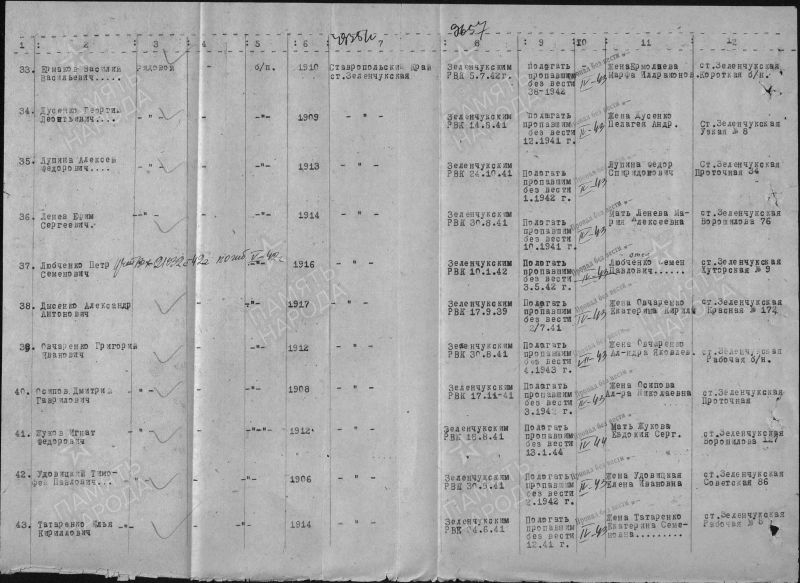 2657
1 : 2 : 3 : 4 : 5 : 6 : 7 : 8 : 9 : 10 : 11 : 12
33. Ермаков Василий рядовой - б/п. 1910 Ставропольский Край Зеленчукским Пологать Жена Ермолаева ст.Зеленчукская
Васильевич..... ст.Зеленчукская РВК 5.7.42г. пропавшим Марфа Иллраионов. Короткая б/н.
без вести IV-43
38-1942
34. Дусенко Георгий Зеленчукским Пологать Жена Дусенко Ст.Зеленчукская
Леонтьевич.... -"- - -"- 1909 - " - РВК 14.8.41 пропавшим Пелагея Андр. Узкая № 8
без вести IV-43
12.1941 г.
35. Лупина Алексей -"- - -"- 1913 - " - Зеленчукским Пологать Лупина Федор Ст.Зеленчукская
Федорович.... РВК 24.10.41 пропавшим Спиридонович Проточная 34
без вести IV-43
1.1942 г.
36. Ленев Ефим -"- - -"- 1914 - " - Зеленчукским Пологать Мать Ленева Ма- ст.Зеленчукская
Сергеевич. РВК 30.8.41 пропавшим рия Алексеевна Ворошилова 76
без вести IV-43
10.1941 г.
37. Любченко Петр -"- 1916 - " - Зеленчукским Пологать отец Любченко Семен ст.Зеленчукская
Семенович РВК 10.1.42 пропавшим Павлович...... Хуторская № 9
без вести
3.5.42 г.
38. Лысенко Александр - -"- 1917 - " - Зеленчукским Пологать Жена Овчаренко ст.Зеленчукская
Антонович РВК 17.9.39 пропавшим Екатерина Кирил Красная № 172
без вести
2/7.41
39. Овчаренко Григорий - -"- 1912 - " - Зеленчукским Пологать Жена Овчаренко ст.Зеленчукская
Иванович РВК 30.8.41 пропавшим Ал-ндра Яковлев. Рабочая б/н.
без вести
4.1943 г.
40. Осипов Дмитрий -"- - -"- 1908 - " - Зеленчукским Пологать Жена Осипова ст.Зеленчукская
Гаврилович РВК 17.11-41 пропавшим Ал-ра Николаевна Проточная
без вести IV-43
3.1942 г.
41. Жуков Игнат -"- - -"-"- 1912 - " - Зеленчукским Пологать Мать Жукова ст.Зеленчукская
Федорович РВК 18.8.41 пропавшим Евдокия Серг. Ворошилова 117
без вести IV-44
13.1.44
42. Удовицкий Тимо- - -"- 1906 - " - Зеленчукским Пологать Жена Удовицкая ст.Зеленчукская
фей Павлович... РВК 30.9.41 пропавшим Елена Ивановна Советская 86
без вести IV-43
2.1942 г.
43. Татаренко Илья -"- - -"- 1914 - " - Зеленчукским Пологать Жена Татаренко ст.Зеленчукская
Кириллович РВК 24.8.41 пропавшим Екатерина Семе- Рабочая № 8
без вести IV-43 новна.........
12.41 г.
ПАМЯТЬ НАРОДА